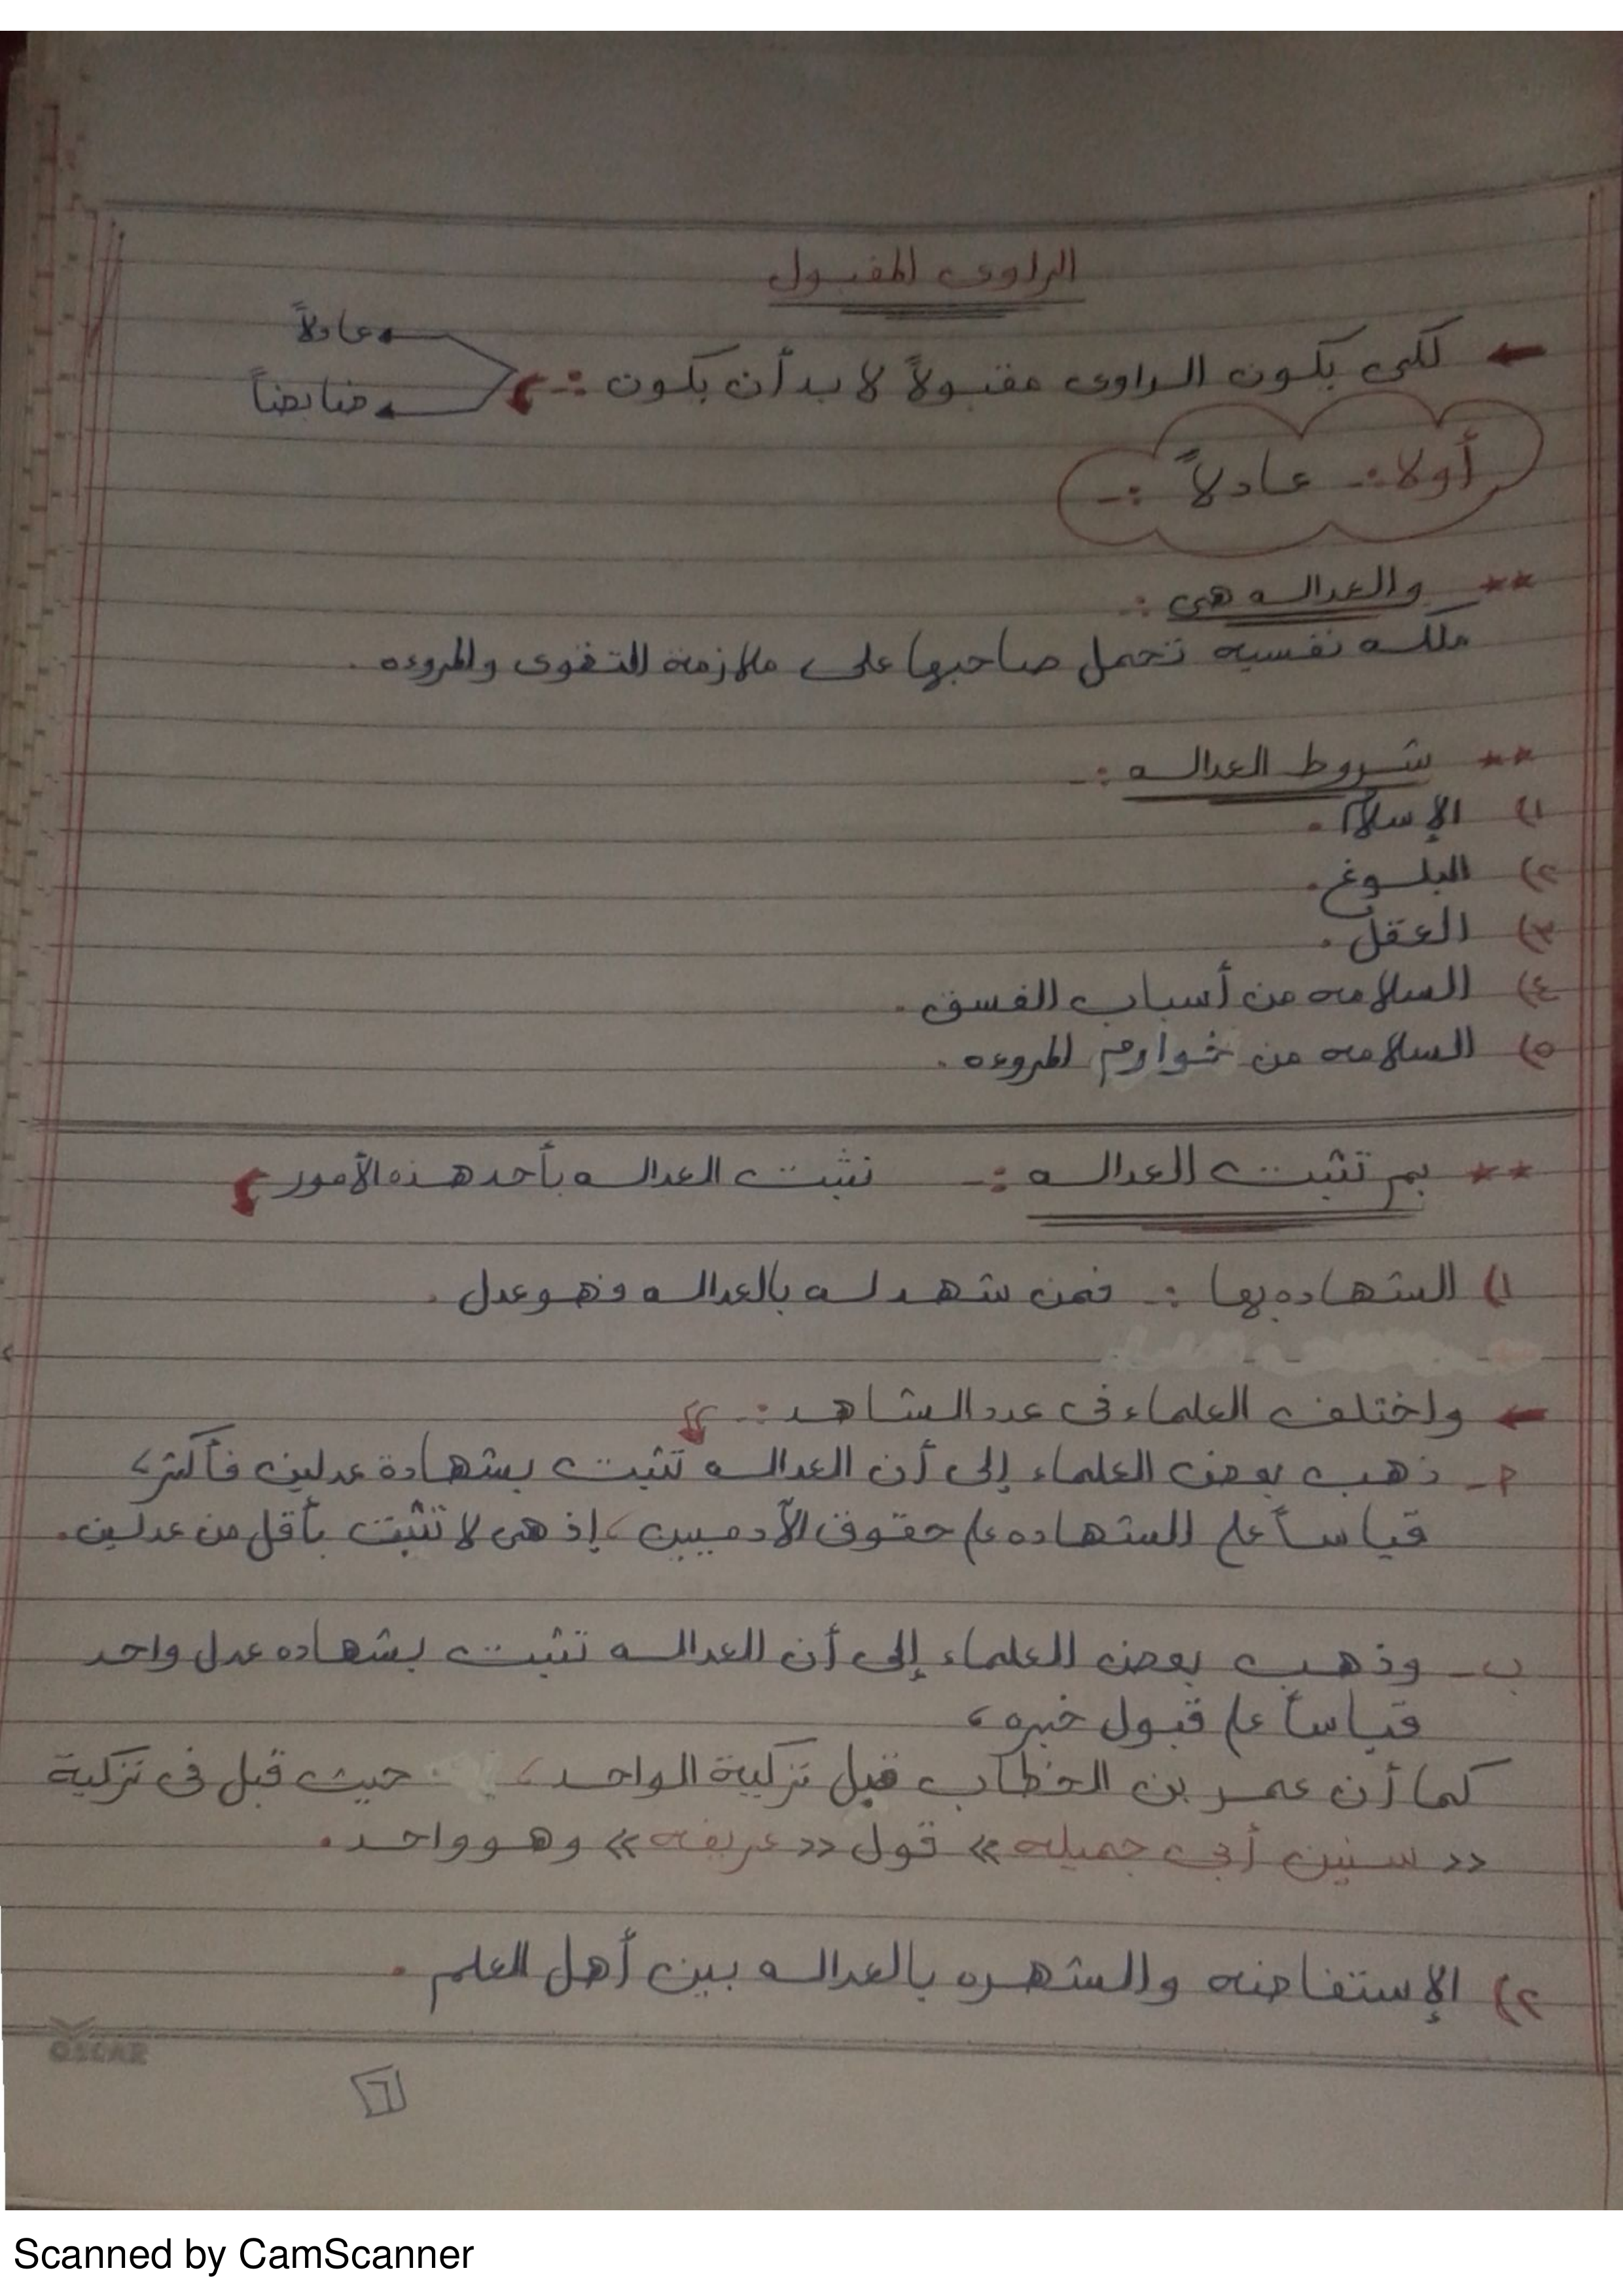 الراوى المقبول
← لكى يكون الراوى مقبولاً لا بد أن يكون :-
عادلاً
ضابطاً
أولا :- عادلاً :-
** والعداله هى :-
ملكه نفسيه تحمل صاحبها على ملازمة التقوى والمروءه .
** شروط العداله :-
١) الإسلام .
٢) البلوغ .
٣) العقل .
٤) السلامه من أسباب الفسق .
٥) السلامه من خوارم المروءه .
** بم تثبت العداله :- تثبت العداله بأحد هذه الأمور
١) الشهاده بها :- فمن شهد له بالعداله فهو عدل .
← واختلف العلماء فى عدد الشاهد :-
أ- ذهب بعض العلماء إلى أن العداله تثبت بشهادة عدلين فأكثر،
قياساً على الشهاده على حقوق الآدميين، إذ هى لا تثبت بأقل من عدلين.
ب- وذهب بعض العلماء إلى أن العداله تثبت بشهاده عدل واحد
قياساً على قبول خبره،
كما أن عمر بن الخطاب قبل تزكية الواحد، حيث قبل فى تزكية
<< سنين أبى جميله >> قول << عريفه >> وهو واحد .
٢) الإستفاضه والشهره بالعداله بين أهل العلم .
OSCAR
٦
Scanned by CamScanner